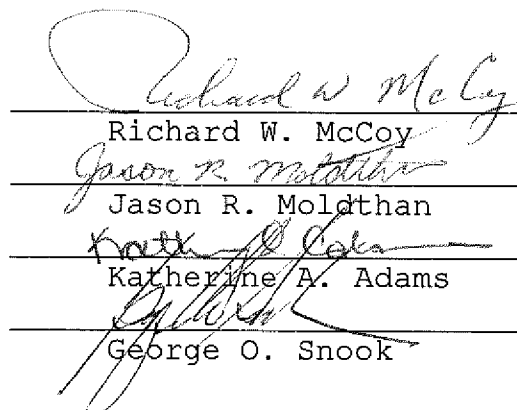 Richard W McCoy
Richard W. McCoy
Jason R. Moldthan
Jason R. Moldthan
Katherine A. Adams
George O. Snook